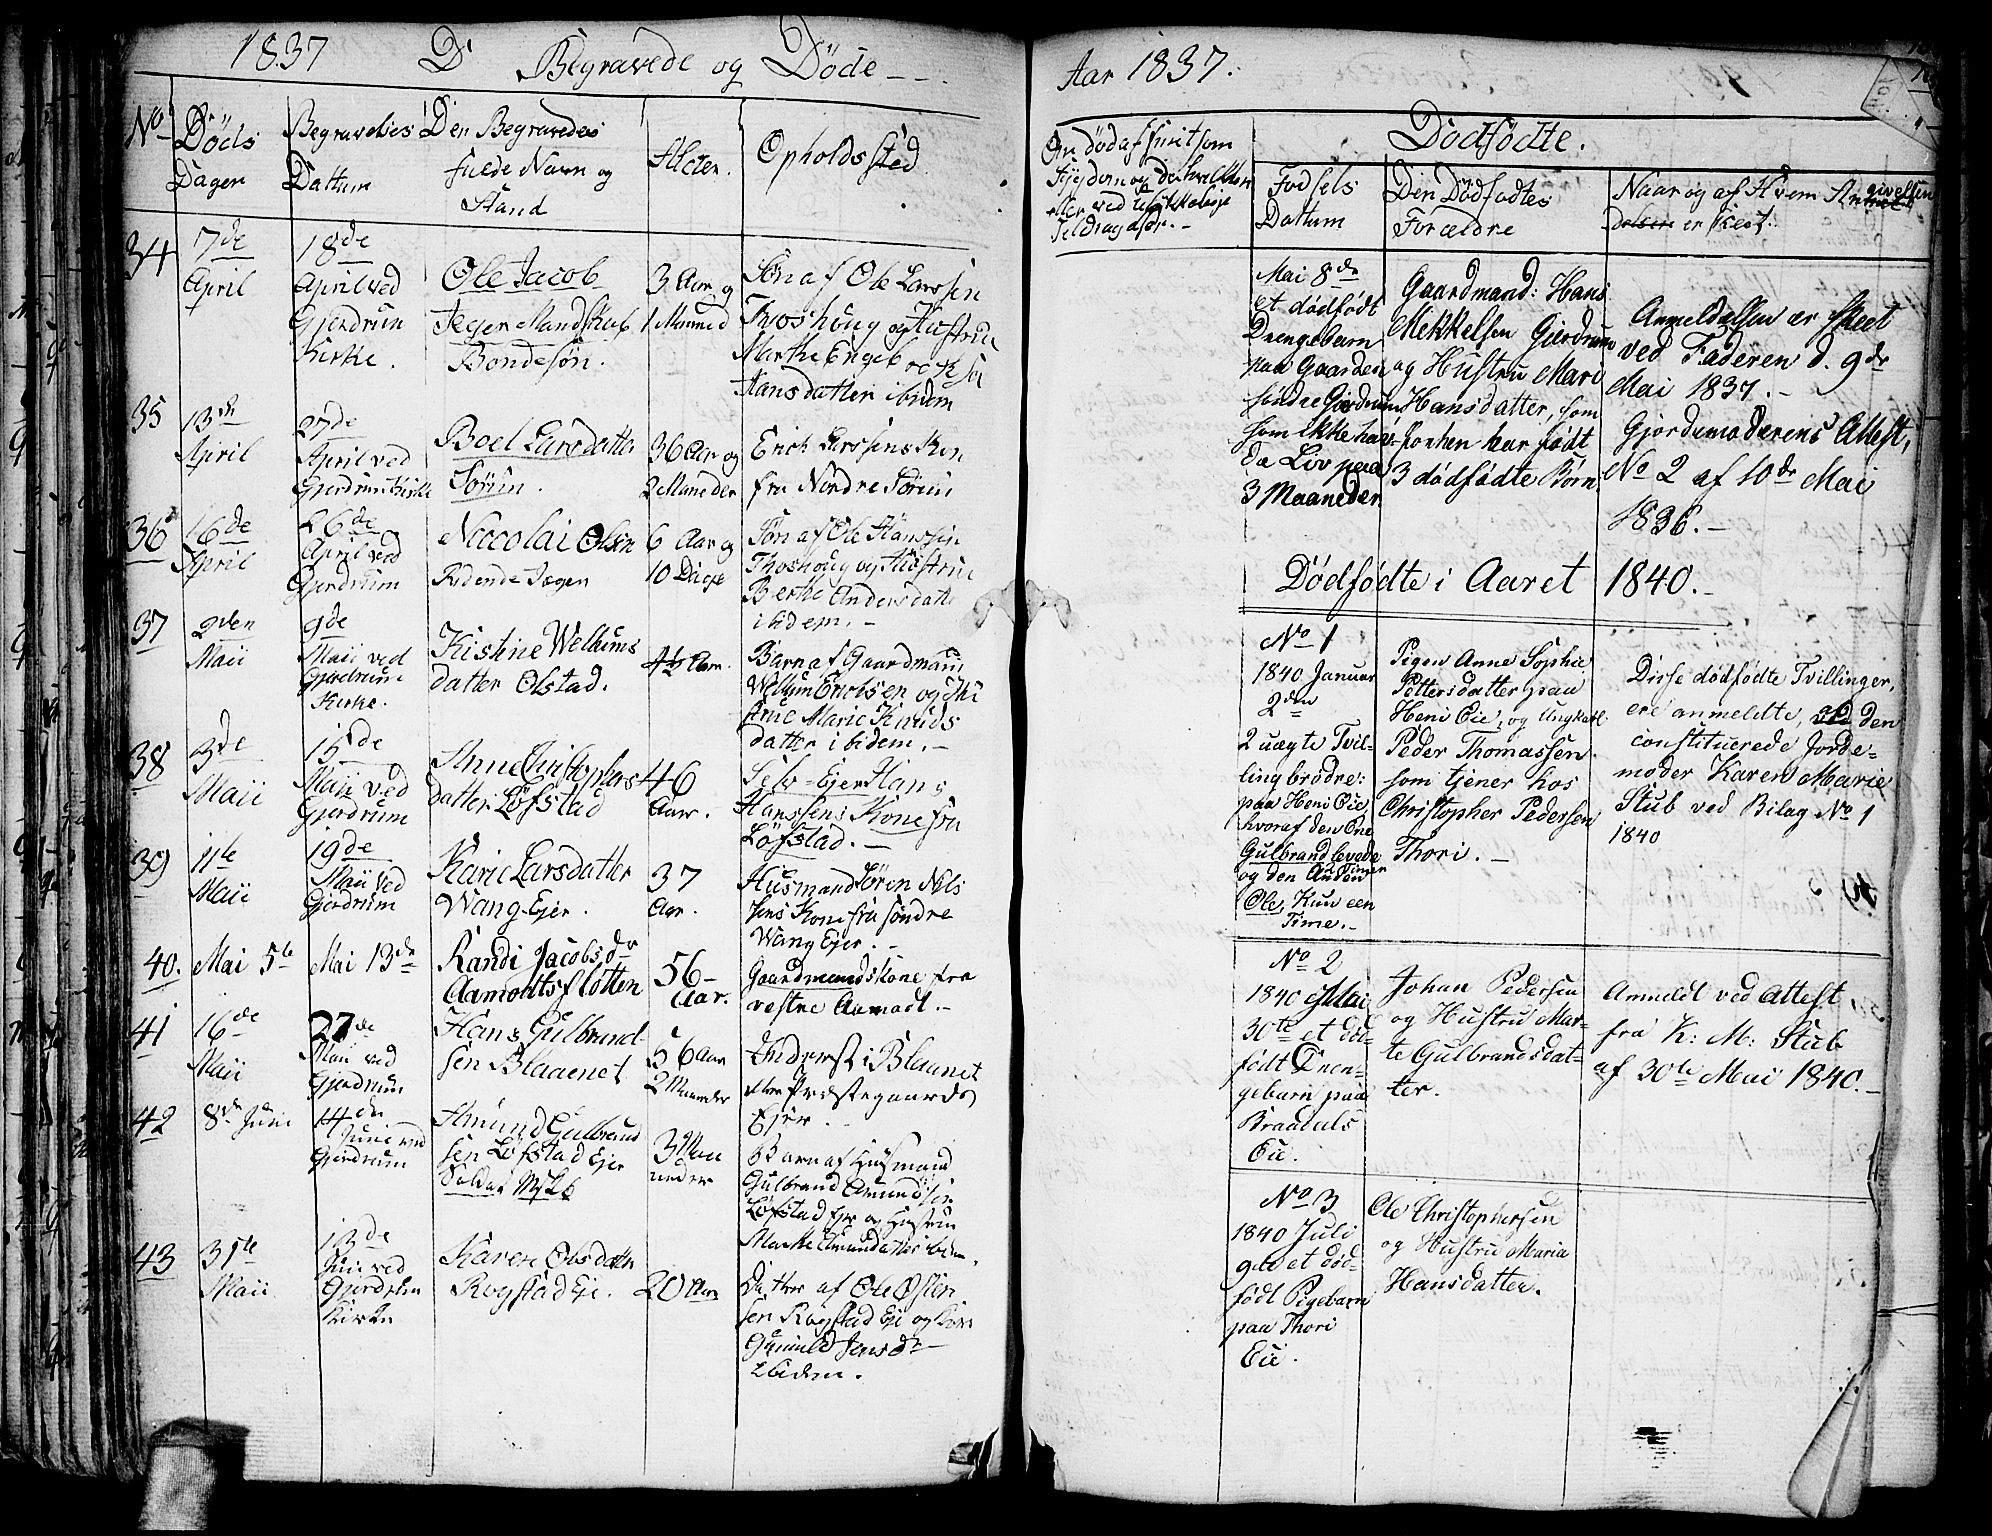 1837 D Begravede og Döde - -
No
Döds
Dagen
Begravelses
Dattum
Den Begravedes
fulde Navn og
Stand
Alder.
Opholdssted
34
7de
April
18de
April ved
Gjerdrum
Kirke.
Ole Jacob
Jeger Mandskab
Bondesön.
3 Aar og
1 Maaned
Sön af Ole Larssen
Troshoug og Hustrue
Marthe Engeb
Hansdatter ibidem
35
13de
April
27de
April ved
Gjerdrum Kirke
Boel Larsdatter
Sörum.
36 Aar og
2 Maaneder
Erich Larssens Kone
fra Nordre Sörum
36
16de
April
26de
April ved
Gjerdrum
Niccolai Olsen
Ridende Jæger
6 Aar og
10 Dage
Sön af Ole Hanssen
Throshoug og Hustrue
Berthe Andersdatter
ibidem. -
37
2den
Maii
9de
Maii ved
Gjerdrum
Kirke.
Kistine Welhums
datter Olstad.
4½ Aar.
Barn af Gaardmand
Welhum Ericksen og
Marie Knuds
datter ibidem. -
38
3de
Maii
15de
Maii ved
Gjerdrum
Anne Christophers
datter Löfstad
46
Aar.
Selv-Ejer Hans
Hanssens Kone fra
Löfstad. -
39
11te
Maii
19de
Maii ved
Gjerdrum
Karie Larsdatter
Wang-Ejer.
37
Aar.
Husmand Sören Nils
sens Kone fra söndre
Wang Ejer. -
40.
Mai 5te
Mai 13de
Randi Jacobsdr
Aamohtsflotten
56-
Aar.
Gaardmandskone fra
vestre Aamodt. -
41
16de
Maii
27de
Maii ved
Gjerdrum
Hans Gulbrand-
sen Blaaenet
56 Aar
2 Maaneder
Inderst i Blaaenet
Præstegaards
Ejer.
42
8de Juni
14de
Juni ved
Gjerdrum
Amund Gulbrand
sen Löfstad Ejer
Soldat
3 Maa
neder
Barn af Husmand
Gulbrand Amundsen
Löfstad Ejer og Hustrue
Marthe Amundatter ibidem.
43
31te
Maii
13de
Juni ved
Gjerdrum
Kirke
Karen Olsdatter
Rogstad Eje.
20 Aar
Datter af Ole Östen
sen Rogstad Eje og Kone
Gunnild Jensdr
Ibidem.
Aar 1837.
Om död af som
Sygdom og
eller ved Ulykkelige
Dödfödte.
Fodsels
Dattum
Den Dödfödtes
Forældre
Naar og af Hvem Angivelsen
er skeet.
Mai 8de
et dödfödt
Drengebarn
paa Gaarden
söndre Gjerdrum
som ikke hav-
de Liv paa
3 Maaneder
Gaardmand: Hans
Mekkelsen Gjerdrum
og Hustru Mari
Hansdatter, som
forhen har födt
3 dödfödte Börn
Anmeldelsen er skeet
ved Faderen d. 9de
Mai 1837. -
Gjordemoderens Attest,
No 2 af 10de Mai
1836. -
Dödfödte i Aaret 1840. -
No 1
1840 Januar
2den
2 uægte Tvil-
lingbrödre:
paa Heni Eie,
hvoraf den Ene
Gulbrand levede
Timer
og den Anden
Ole, Kun een
Time. -
Pigen Anne Sophie
Pettersdatter paa
Heni Eie, og Ungkarl
Peder Thomassen
som tjener hos
Christopher Pedersen
Thori. -
Disse dödfödte Tvillinger,
ere anmeldte, ved den
constituerede Jorde-
moder Karen Marie
Stub ved Bilag No 1
1840
No 2
1840 Mai
30te et död-
födt Dren-
gebarn paa
Braadals
Eie.
Johan Pedersen
og Hustru Mar-
te Gulbrandsdat-
ter.
Anmeldt ved Attest
fra K: M: Stub
af 30te Mai 1840. -
No 3
1840 Juli
9de et död-
födt Pigebarn
paa Thori
Eie.
Ole Christophersen
og Hustru Maria
Hansdatter.